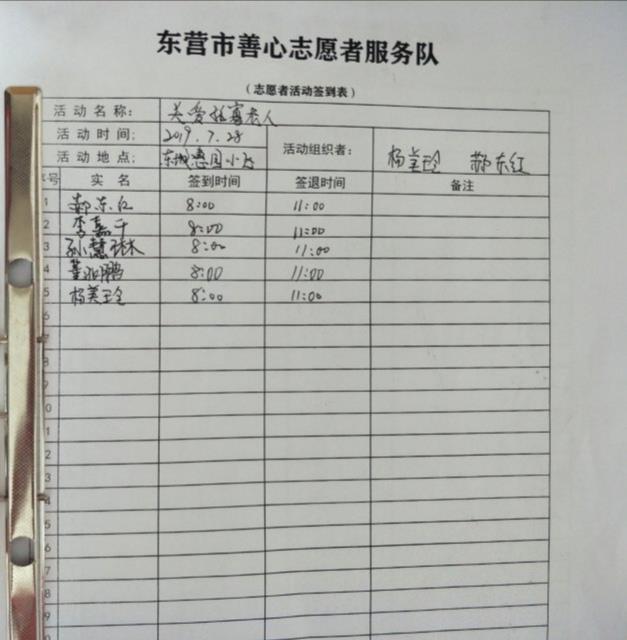 东营市善心志愿者服务队
(志愿者活动签到表)
活动名称: 关爱孤寡老人
活动时间: 2019.7.28
活动地点: 东城惠园小区
活动组织者: 杨美玲 郝东红
序号 实名 签到时间 签退时间 备注
1 郝东红 8:00 11:00
2 李嘉千 8:00 11:00
3 孙慧琳 8:00 11:00
4 鹏 8:00 11:00
5 杨美玲 8:00 11:00
6
7
8
9
0
1
2
3
4
5
6
7
8
9
0